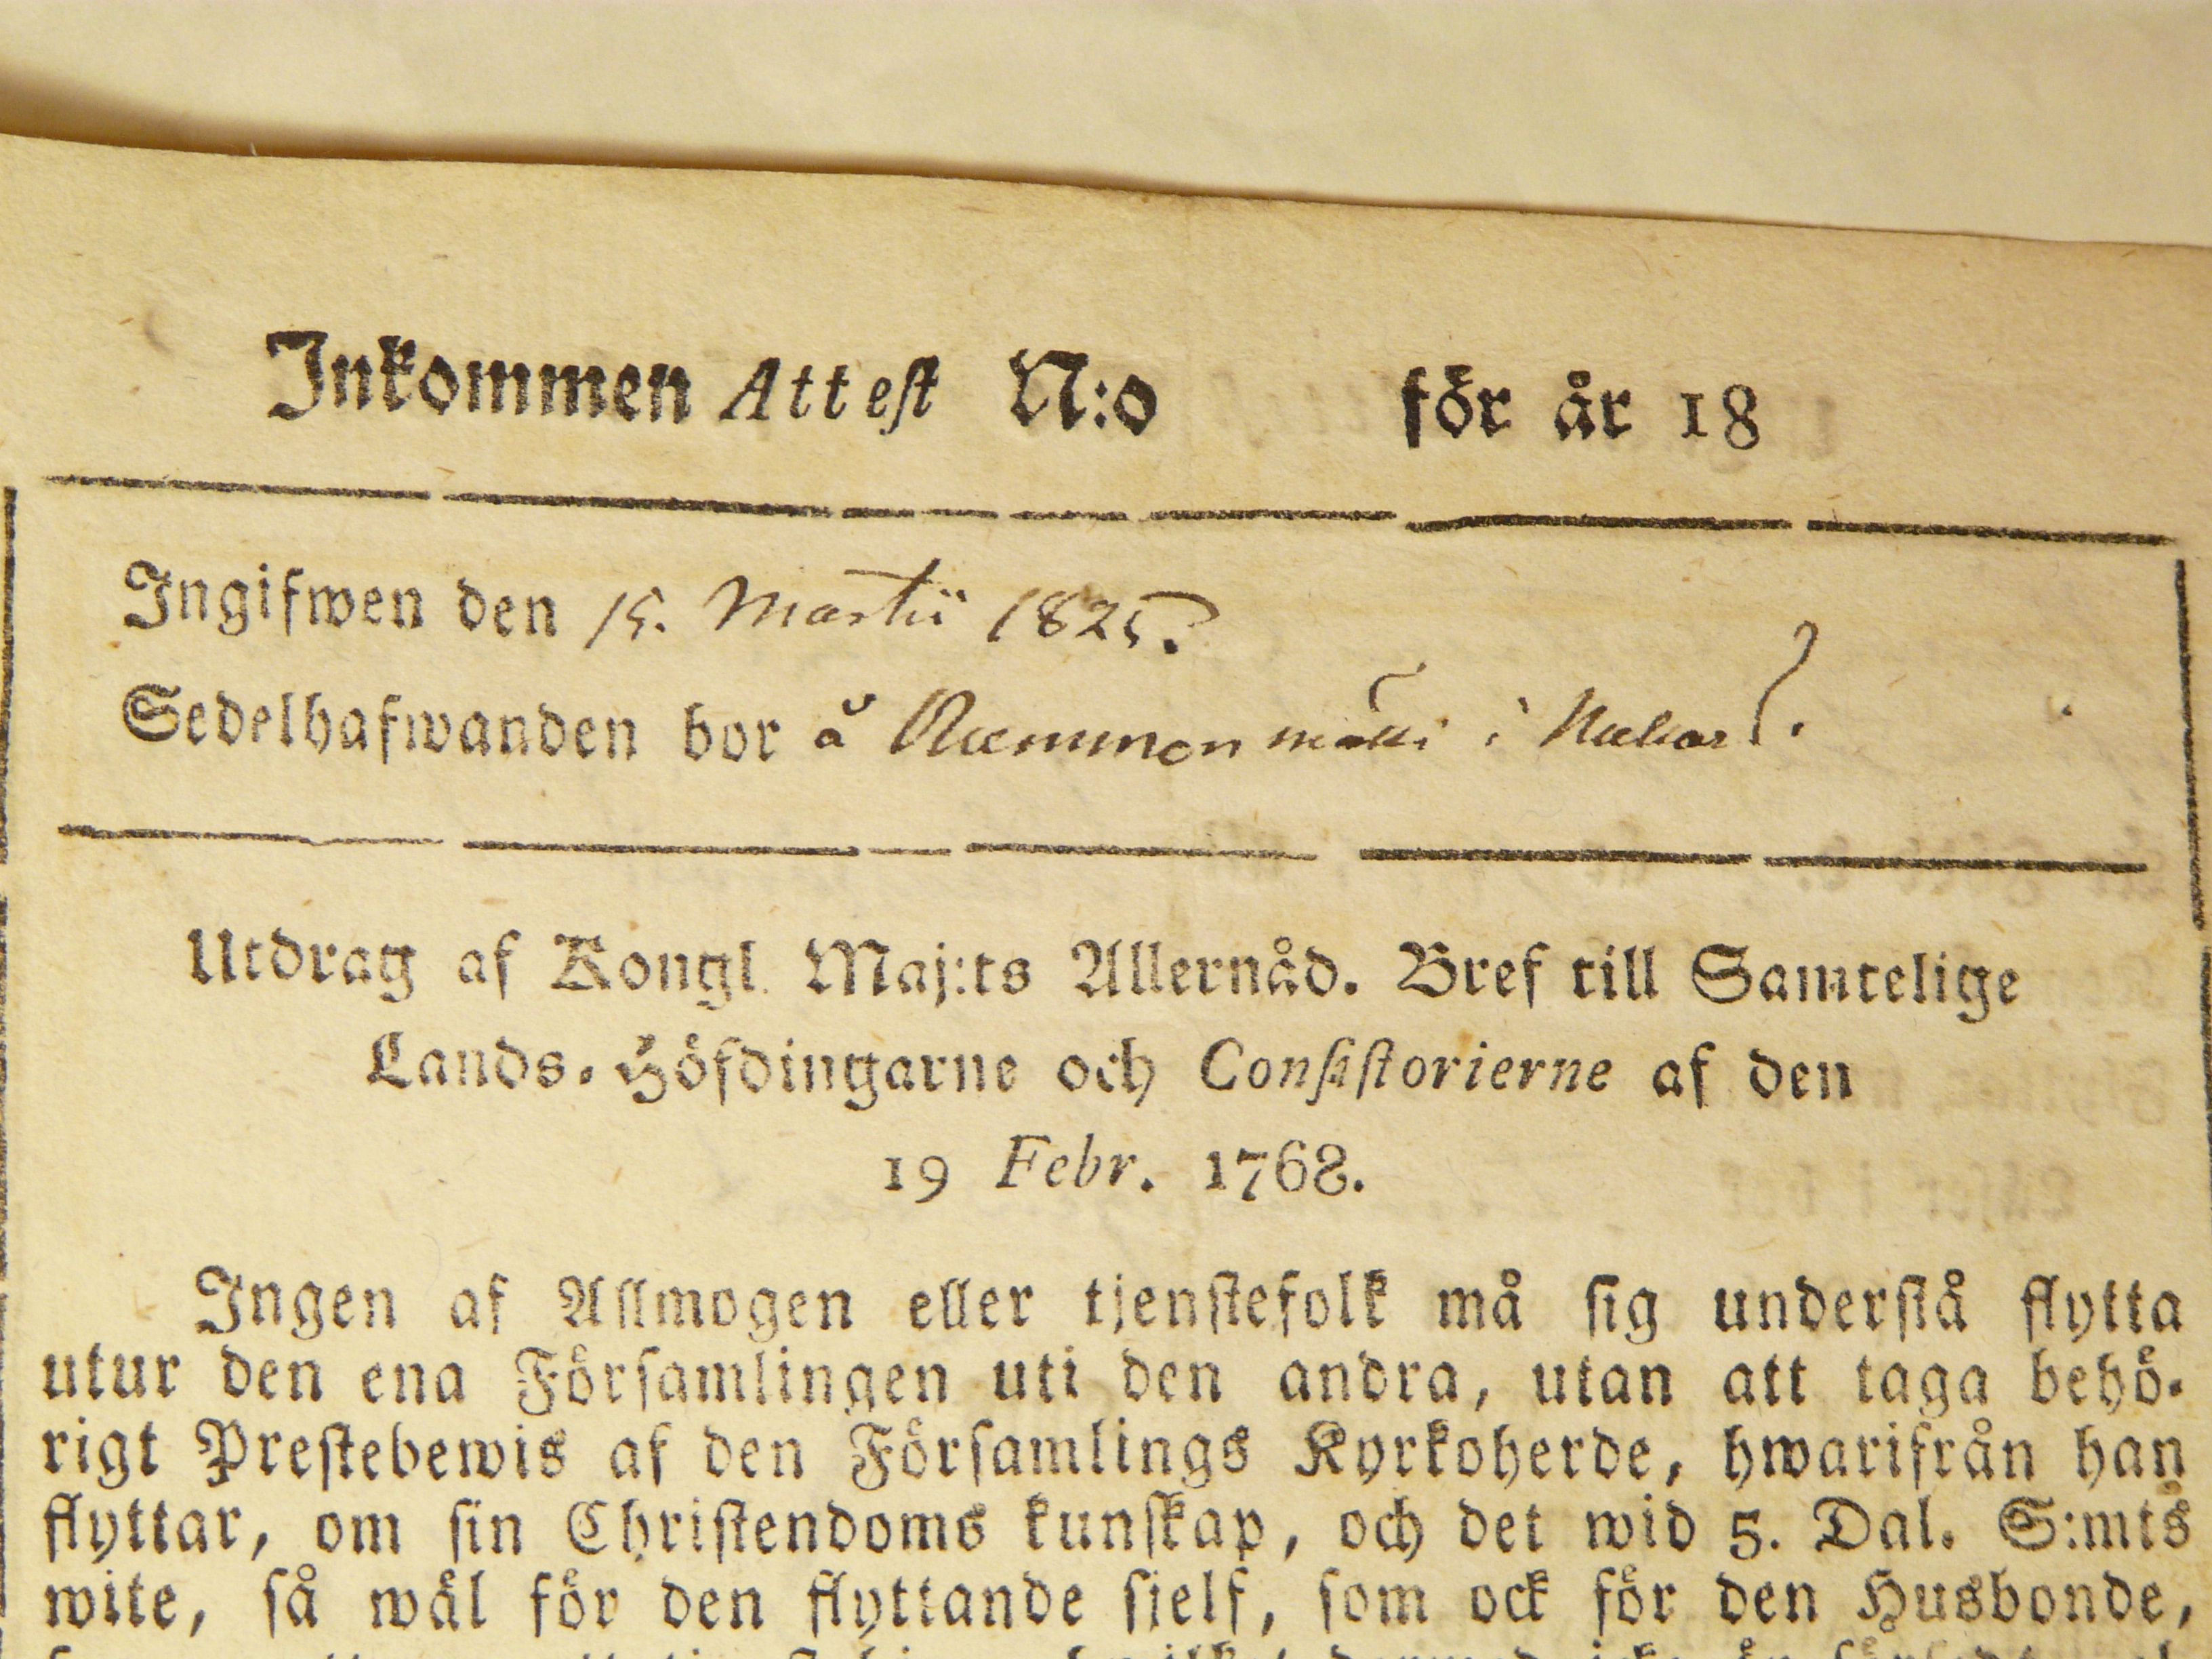 Inkommen Attest N:o för år 18
Ingifwen den 15. Martii 1825.
Sedelhafwanden bor å i
Utdrag af Kongl. Maj:ts Allernåd. Bref till Samtelige
Lands-Höfdingarne och Consistorierne af den
19 Febr. 1768.
Ingen af Allmogen eller tjenstefolk må sig understå flytta
utur den ena Församlingen uti den andra, utan att taga behö-
rigt Prestebewis af den Församlings Kyrkoherde, hwarifrån han
flyttar, om sin Christendoms kunskap, och det wid 5. Dal. S:mts
wite, så wäl för den flyttande sielf, som ock för den Husbonde,